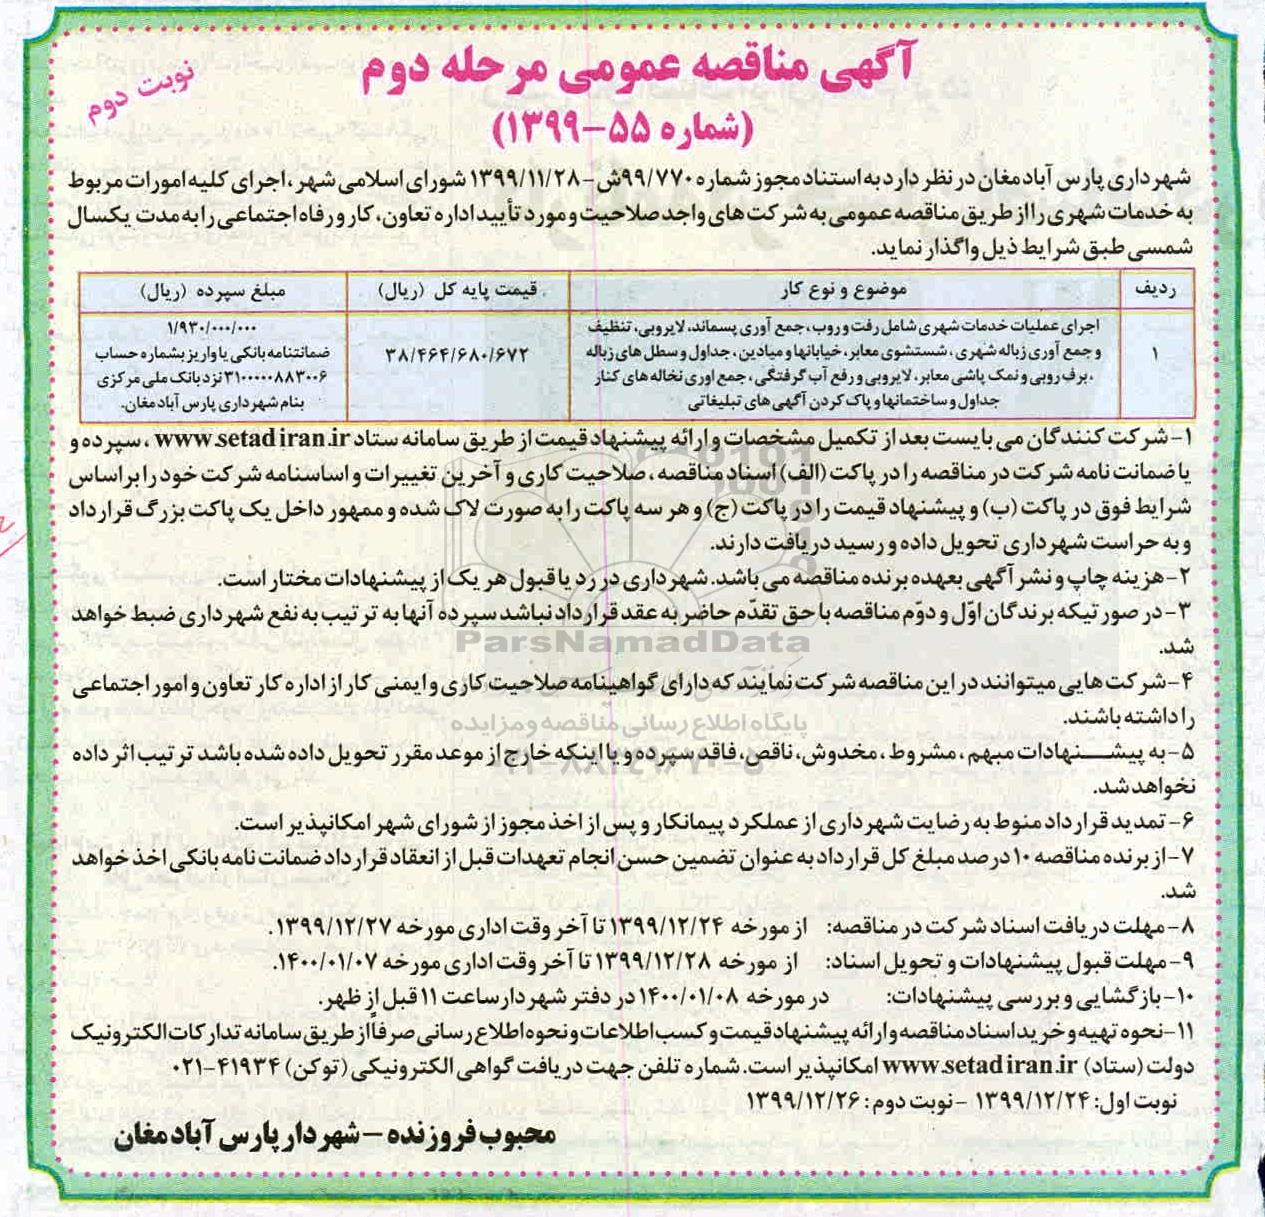 آگهی مناقصه عمومی مرحله دوم
نوبت دوم
(شماره ۵۵-۱۳۹۹)
شهرداری پارس آباد مغان در نظر دارد به استناد مجوز شماره ۹۹/۷۷۰ش-۱۳۹۹/۱۱/۲۸ شورای اسلامی شهر، اجرای کلیه امورات مربوط
به خدمات شهری را از طریق مناقصه عمومی به شرکت های واجد صلاحیت و مورد تأیید اداره تعاون، کار و رفاه اجتماعی را به مدت یکسال
شمسی طبق شرایط ذیل واگذار نماید.
ردیف موضوع و نوع کار قیمت پایه کل (ریال) مبلغ سپرده (ریال)
۱
اجرای عملیات خدمات شهری شامل رفت و روب، جمع آوری پسماند، لایروبی، تنظیف
و جمع آوری زباله شهری، شستشوی معابر، خیابانها و میادین، جداول و سطل های زباله
، برف روبی و نمک پاشی معابر، لایروبی و رفع آب گرفتگی، جمع اوری نخاله های کنار
جداول و ساختمانها و پاک کردن آگهی های تبلیغاتی
۳۸/۴۶۴/۶۸۰/۶۷۲
۱/۹۳۰/۰۰۰/۰۰۰
ضمانتنامه بانکی یا واریز بشماره حساب
۳۱۰۰۰۰۰۸۸۳۰۰۶ نزد بانک ملی مرکزی
بنام شهرداری پارس آباد مغان.
۱-شرکت کنندگان می بایست بعد از تکمیل مشخصات و ارائه پیشنهاد قیمت از طریق سامانه ستاد www.setadiran.ir، سپرده و
یا ضمانت نامه شرکت در مناقصه را در پاکت (الف) اسناد مناقصه، صلاحیت کاری و آخرین تغییرات و اساسنامه شرکت خود را بر اساس
شرایط فوق در پاکت (ب) و پیشنهاد قیمت را در پاکت (ج) و هر سه پاکت را به صورت لاک شده و ممهور داخل یک پاکت بزرگ قرار داد
و به حراست شهرداری تحویل داده و رسید دریافت دارند.
۲-هزینه چاپ و نشر آگهی بعهده برنده مناقصه می باشد. شهرداری در رد یا قبول هر یک از پیشنهادات مختار است.
۳-در صورتیکه برندگان اوّل و دوّم مناقصه با حق تقدّم حاضر به عقد قرارداد نباشد سپرده آنها به ترتیب به نفع شهرداری ضبط خواهد
شد.
ParsNamadData
۴-شرکت هایی میتوانند در این مناقصه شرکت نمایند که دارای گواهینامه صلاحیت کاری و ایمنی کار از اداره کار تعاون و امور اجتماعی
را داشته باشند.
پایگاه اطلاع رسانی مناقصه و مزایده
۵-به پیشنهادات مبهم، مشروط، مخدوش، ناقص، فاقد سپرده و یا اینکه خارج از موعد مقرر تحویل داده شده باشد ترتیب اثر داده
نخواهد شد.
۶- تمدید قرارداد منوط به رضایت شهرداری از عملکرد پیمانکار و پس از اخذ مجوز از شورای شهر امکانپذیر است.
۷-از برنده مناقصه ۱۰ درصد مبلغ کل قرارداد به عنوان تضمین حسن انجام تعهدات قبل از انعقاد قرارداد ضمانت نامه بانکی اخذ خواهد
شد.
۸-مهلت دریافت اسناد شرکت در مناقصه: از مورخه ۱۳۹۹/۱۲/۲۴ تا آخر وقت اداری مورخه ۱۳۹۹/۱۲/۲۷.
۹-مهلت قبول پیشنهادات و تحویل اسناد: از مورخه ۱۳۹۹/۱۲/۲۸ تا آخر وقت اداری مورخه ۱۴۰۰/۰۱/۰۷.
۱۰-بازگشایی و بررسی پیشنهادات: در مورخه ۱۴۰۰/۰۱/۰۸ در دفتر شهردار ساعت ۱۱ قبل از ظهر.
۱۱-نحوه تهیه و خرید اسناد مناقصه و ارائه پیشنهاد قیمت و کسب اطلاعات و نحوه اطلاع رسانی صرفاً از طریق سامانه تدارکات الکترونیک
دولت (ستاد) www.setadiran.ir امکانپذیر است. شماره تلفن جهت دریافت گواهی الکترونیکی (توکن) ۴۱۹۳۴-۰۲۱
نوبت اول: ۱۳۹۹/۱۲/۲۴ -نوبت دوم: ۱۳۹۹/۱۲/۲۶
محبوب فروزنده - شهردار پارس آباد مغان